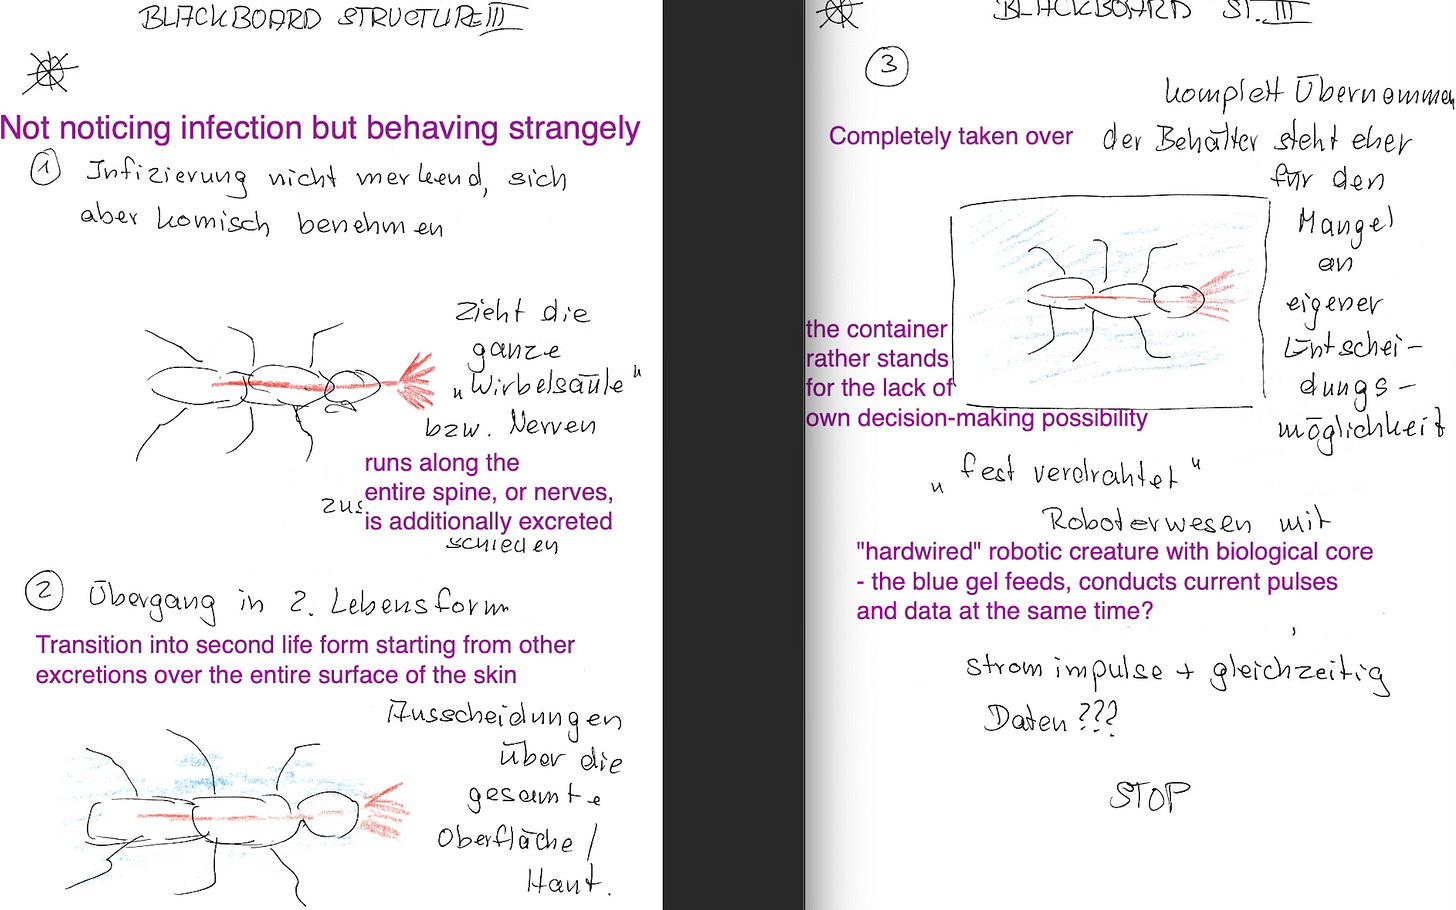 BLACKBOARD STRUCTURE III
Not noticing infection but behaving strangely
1 Infizierung nicht merkend, sich
aber komisch benehmen
Zieht die
ganze
"Wirbelsäule"
bzw. Nerven
runs along the
entire spine, or nerves,
is additionally excreted
zus
schieden
2 Übergang in 2. Lebensform
Transition into second life form starting from other
excretions over the entire surface of the skin
Ausscheidungen
über die
gesamte
Oberfläche /
Haut.
BLACKBOARD ST. III
3
komplett Übernommen
Completely taken over
der Behälter steht eher
für den
Mangel
an
eigener
Entschei-
dungs-
möglichkeit
the container
rather stands
for the lack of
own decision-making possibility
"fest verdrahtet"
Roboterwesen mit
"hardwired" robotic creature with biological core
- the blue gel feeds, conducts current pulses
and data at the same time?
Stromimpulse + gleichzeitig
Daten???
STOP